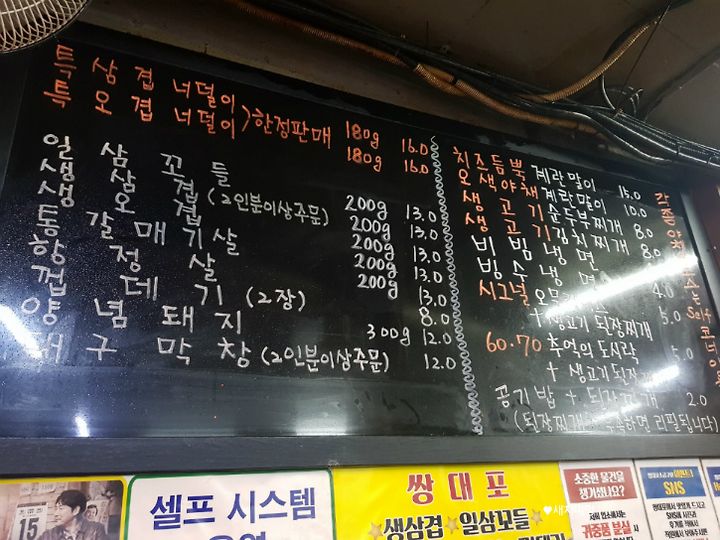 특 삼겹 너덜이 180g 16.0
특 오겹 너덜이 > 한정판매 180g 16.0
일 삼 꼬 들 200g 13.0
생 삼 겹 (2인분이상주문) 200g 13.0
생 오 겹 200g 13.0
통 갈 매 기 살 200g 13.0
항 정 살 200g 13.0
껍 데 기 (2장) 8.0
양 념 돼 지 300g 12.0
대 구 막 창 (2인분이상주문) 12.0
치즈듬뿍 계란말이 15.0
오색야채 계란말이 10.0
생고기 순두부찌개 8.0
생고기 김치찌개 8.0
비 빔 냉 면
빙 수 냉 면 4.0
시그널
+ 생고기 된장찌개 5.0
60·70 추억의 도시락 5.0
+ 생고기 된장
공기밥 + 된장찌개 2.0
(된장찌개 하면 리필됩니다)
각종
Self
15
셀프 시스템
쌍대포
생삼겹 일삼꼬들
소중한 물건을
챙기셨나요?
귀중품 분실시
SNS